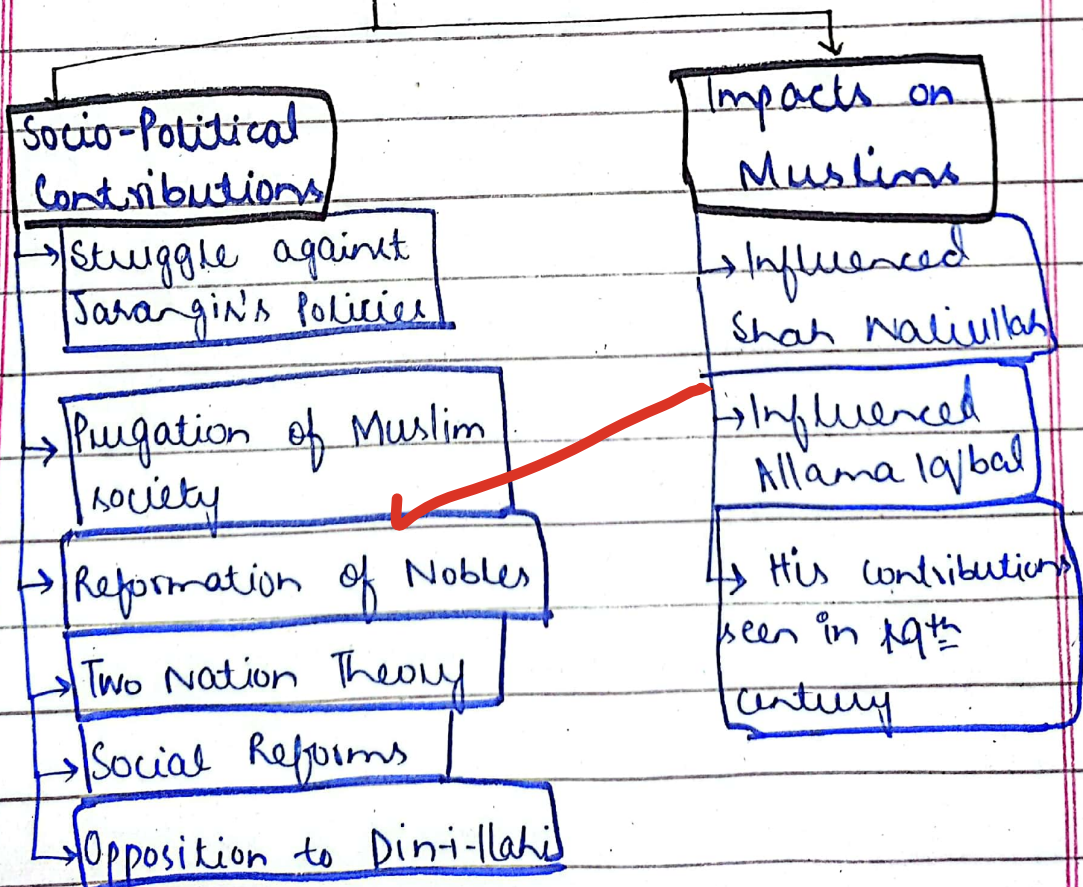 Socio-Political
Contributions
Struggle against
Jahangir's Policies
Purgation of Muslim
society
Reformation of Nobles
Two Nation Theory
Social Reforms
Opposition to Din-i-Ilahi
Impacts on
Muslims
Influenced
Shah Waliullah
Influenced
Allama Iqbal
His contributions
seen in 19th
century